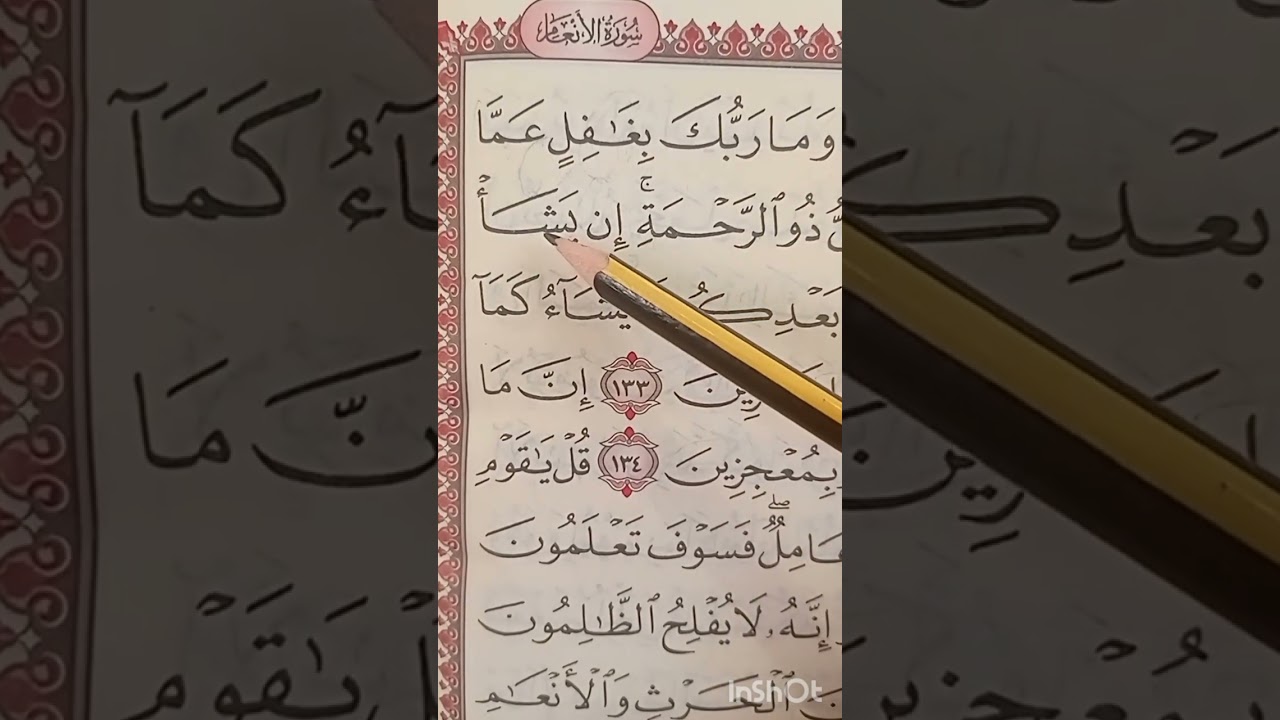 سُورَةُ الأَنْعَام
وَمَا رَبُّكَ بِغَٰفِلٍ عَمَّا
ذُو ٱلرَّحْمَةِ ۚ إِن يَشَأْ
بَعْدِكُم يَشَآءُ كَمَآ
١٣٣ إِنَّ مَا
بِمُعْجِزِينَ ١٣٤ قُلْ يَٰقَوْمِ
عَامِلٌ ۖ فَسَوْفَ تَعْلَمُونَ
إِنَّهُۥ لَا يُفْلِحُ ٱلظَّٰلِمُونَ
ٱلْحَرْثِ وَٱلْأَنْعَٰمِ
InShOt